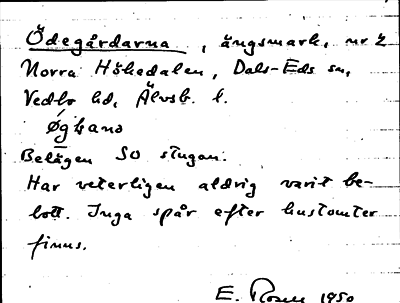 Ödegårdarna, ängsmark, nr 2
Norra Hökedalen, Dals-Eds sn,
Vedbo hd, Älvsb. l.
Belägen SO stugan.
Har veterligen aldrig varit be-
bott. Inga spår efter hustomter
finns.
E. Rosen 1950